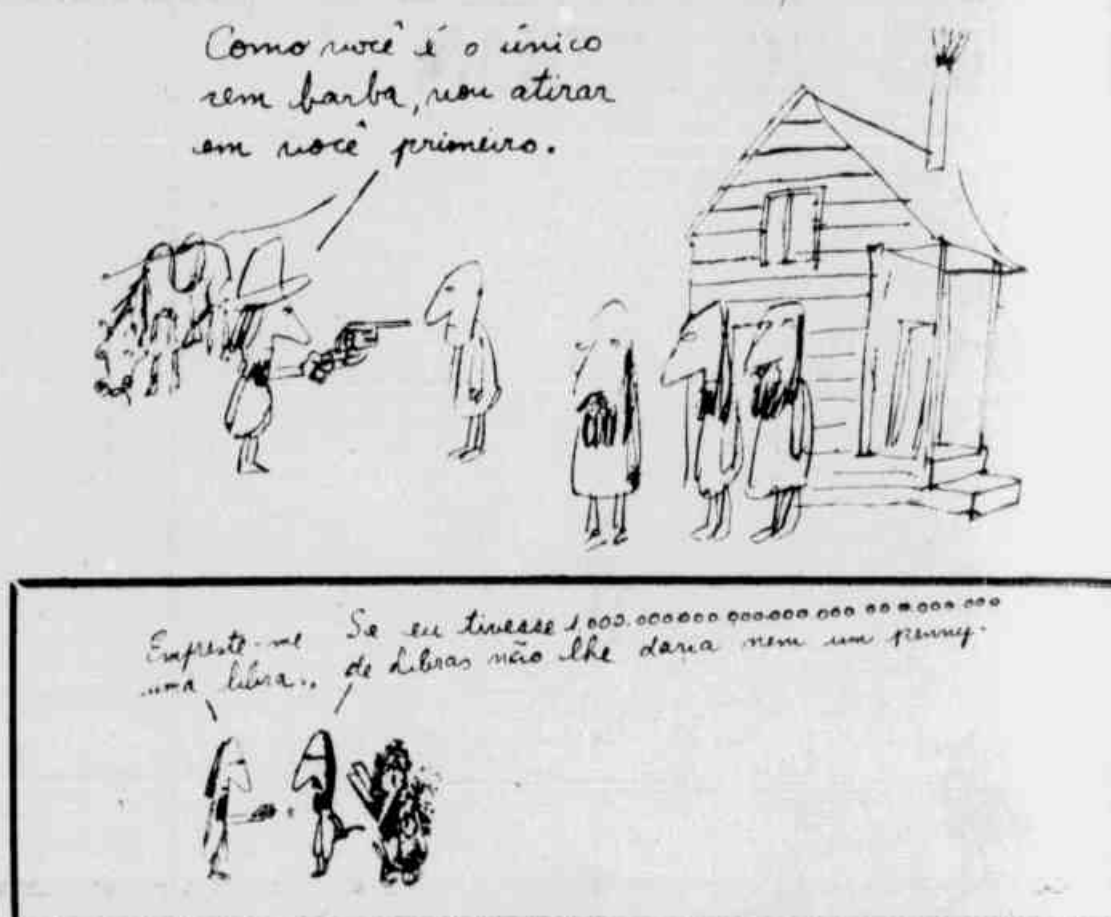 Como você é o único
sem barba, vou atirar
em você primeiro.
Empreste-me
uma libra..
Se eu tivesse 1000.000000 000.000.000 000.000.000
de libras não lhe daria nem um penny.